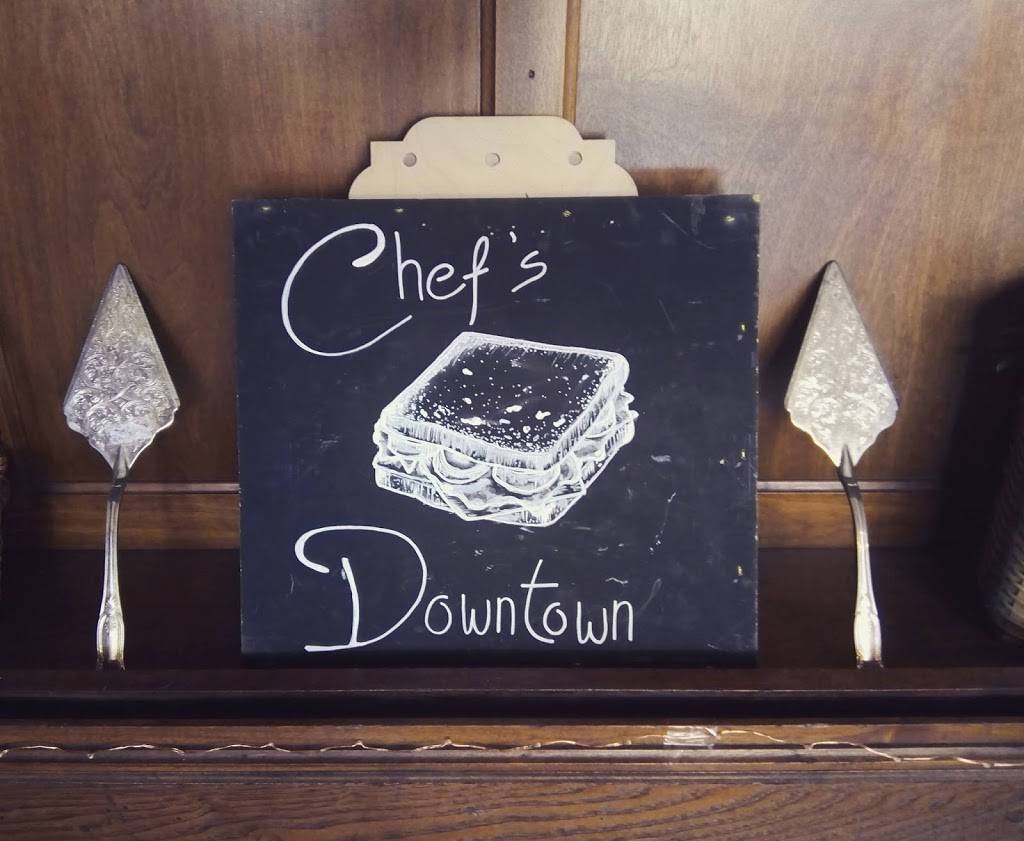 Chef's
Downtown